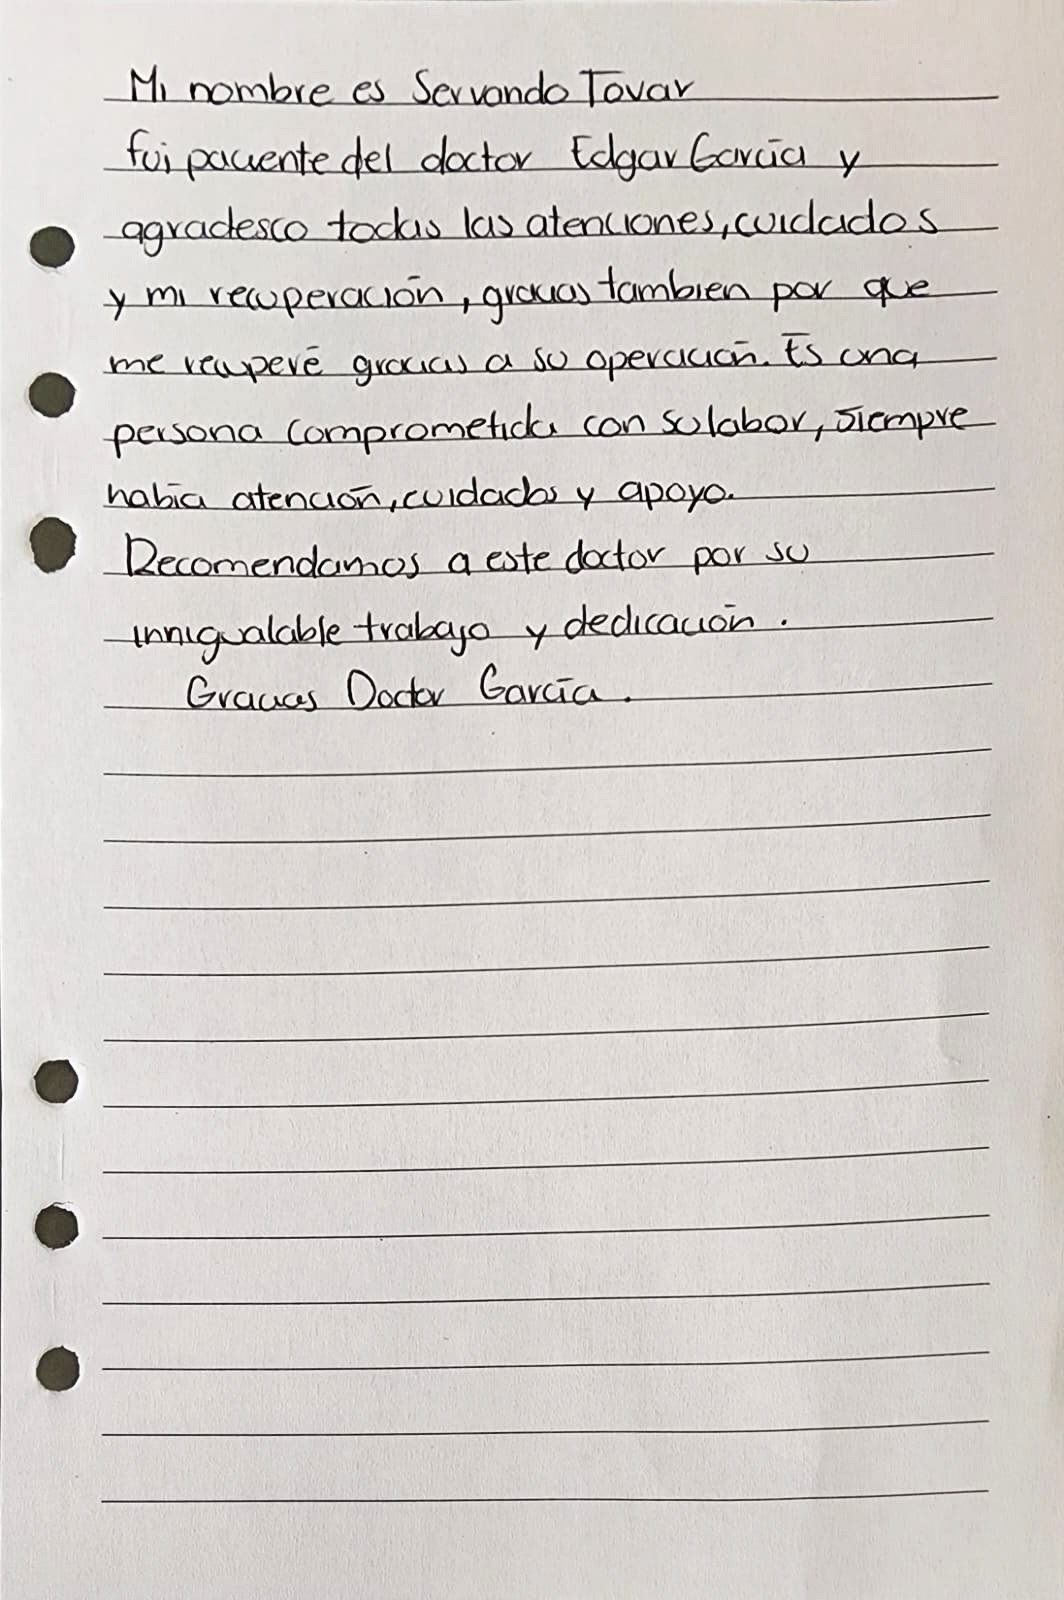 Mi nombre es Servando Tovar
fui paciente del doctor Edgar García y
agradesco todas las atenciones, cuidados
y mi recuperación, gracias tambien por que
me recuperé gracias a su operación. Es una
persona comprometida con su labor, siempre
había atención, cuidados y apoyo.
Recomendamos a este doctor por su
innigualable trabajo y dedicación.
Gracias Doctor García.